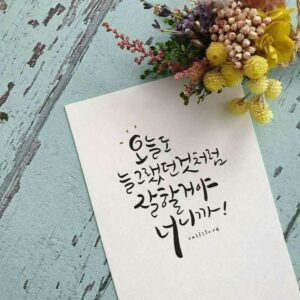 오늘도
늘그랬던것처럼
잘할거야
너니까!